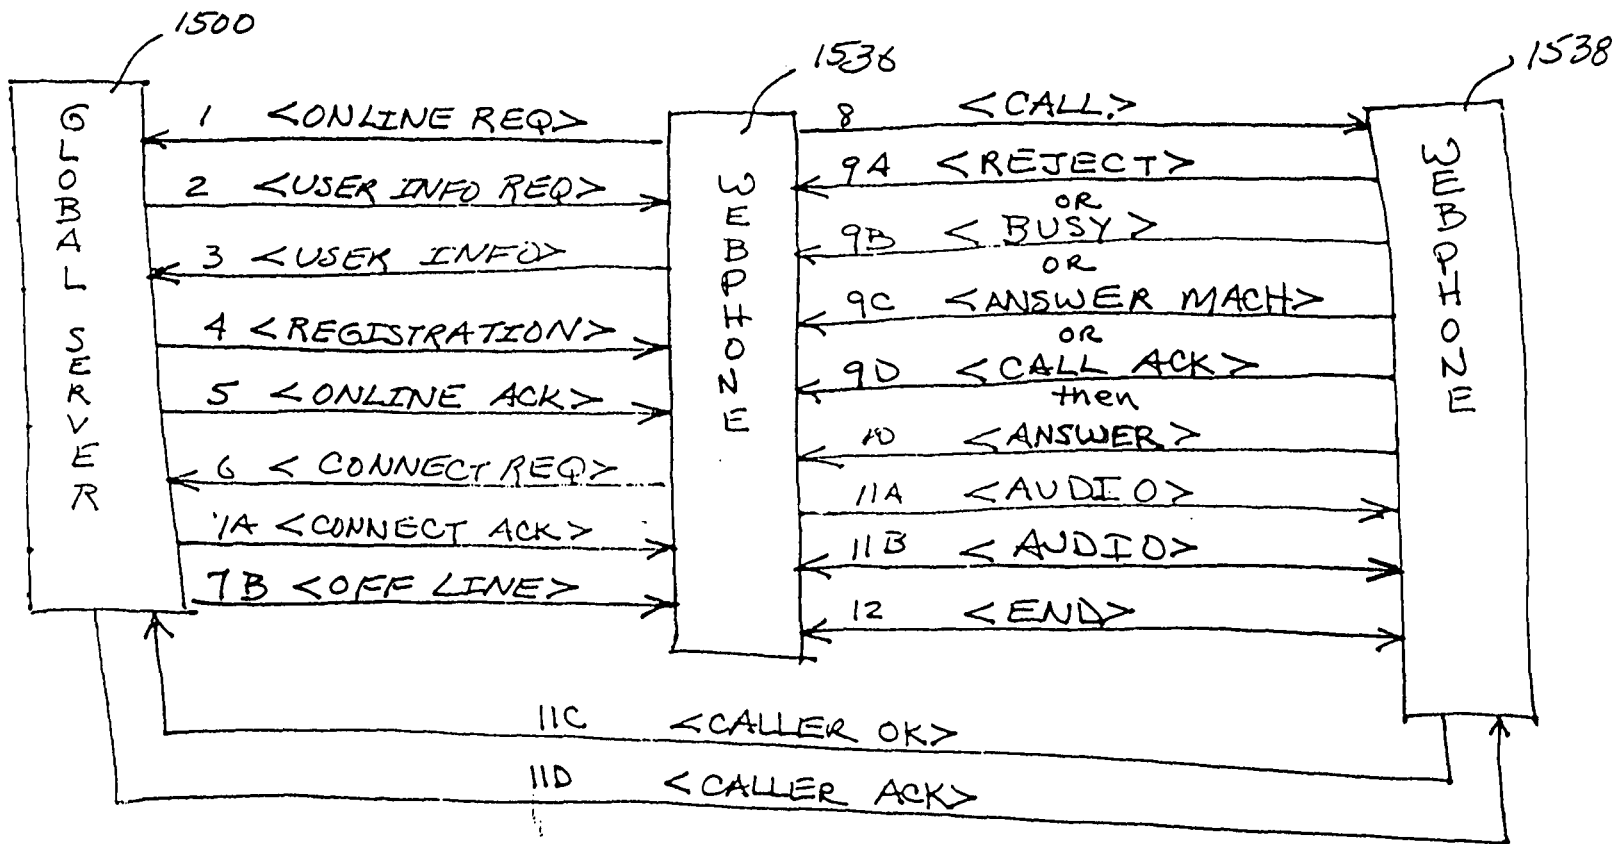 1500
1536
1538
GLOBAL SERVER
WEBPHONE
WEBPHONE
1 <ONLINE REQ>
2 <USER INFO REQ>
3 <USER INFO>
4 <REGISTRATION>
5 <ONLINE ACK>
6 <CONNECT REQ>
7A <CONNECT ACK>
7B <OFF LINE>
8 <CALL>
9A <REJECT>
OR
9B <BUSY>
OR
9C <ANSWER MACH>
OR
9D <CALL ACK>
then
10 <ANSWER>
11A <AUDIO>
11B <AUDIO>
12 <END>
11C <CALLER OK>
11D <CALLER ACK>